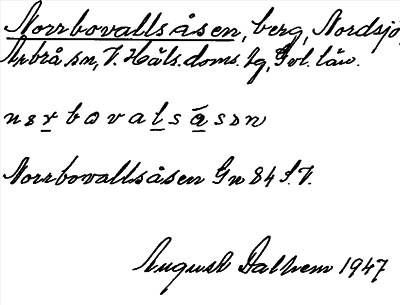 Norrbovallsåsen, berg, Nordsjö,
Arbrå sn, V. Häls. doms. sg, Gvl. län.
norbovalsåsən
Norrbovallsåsen Gn 84 S.V.
August Dalhem 1947